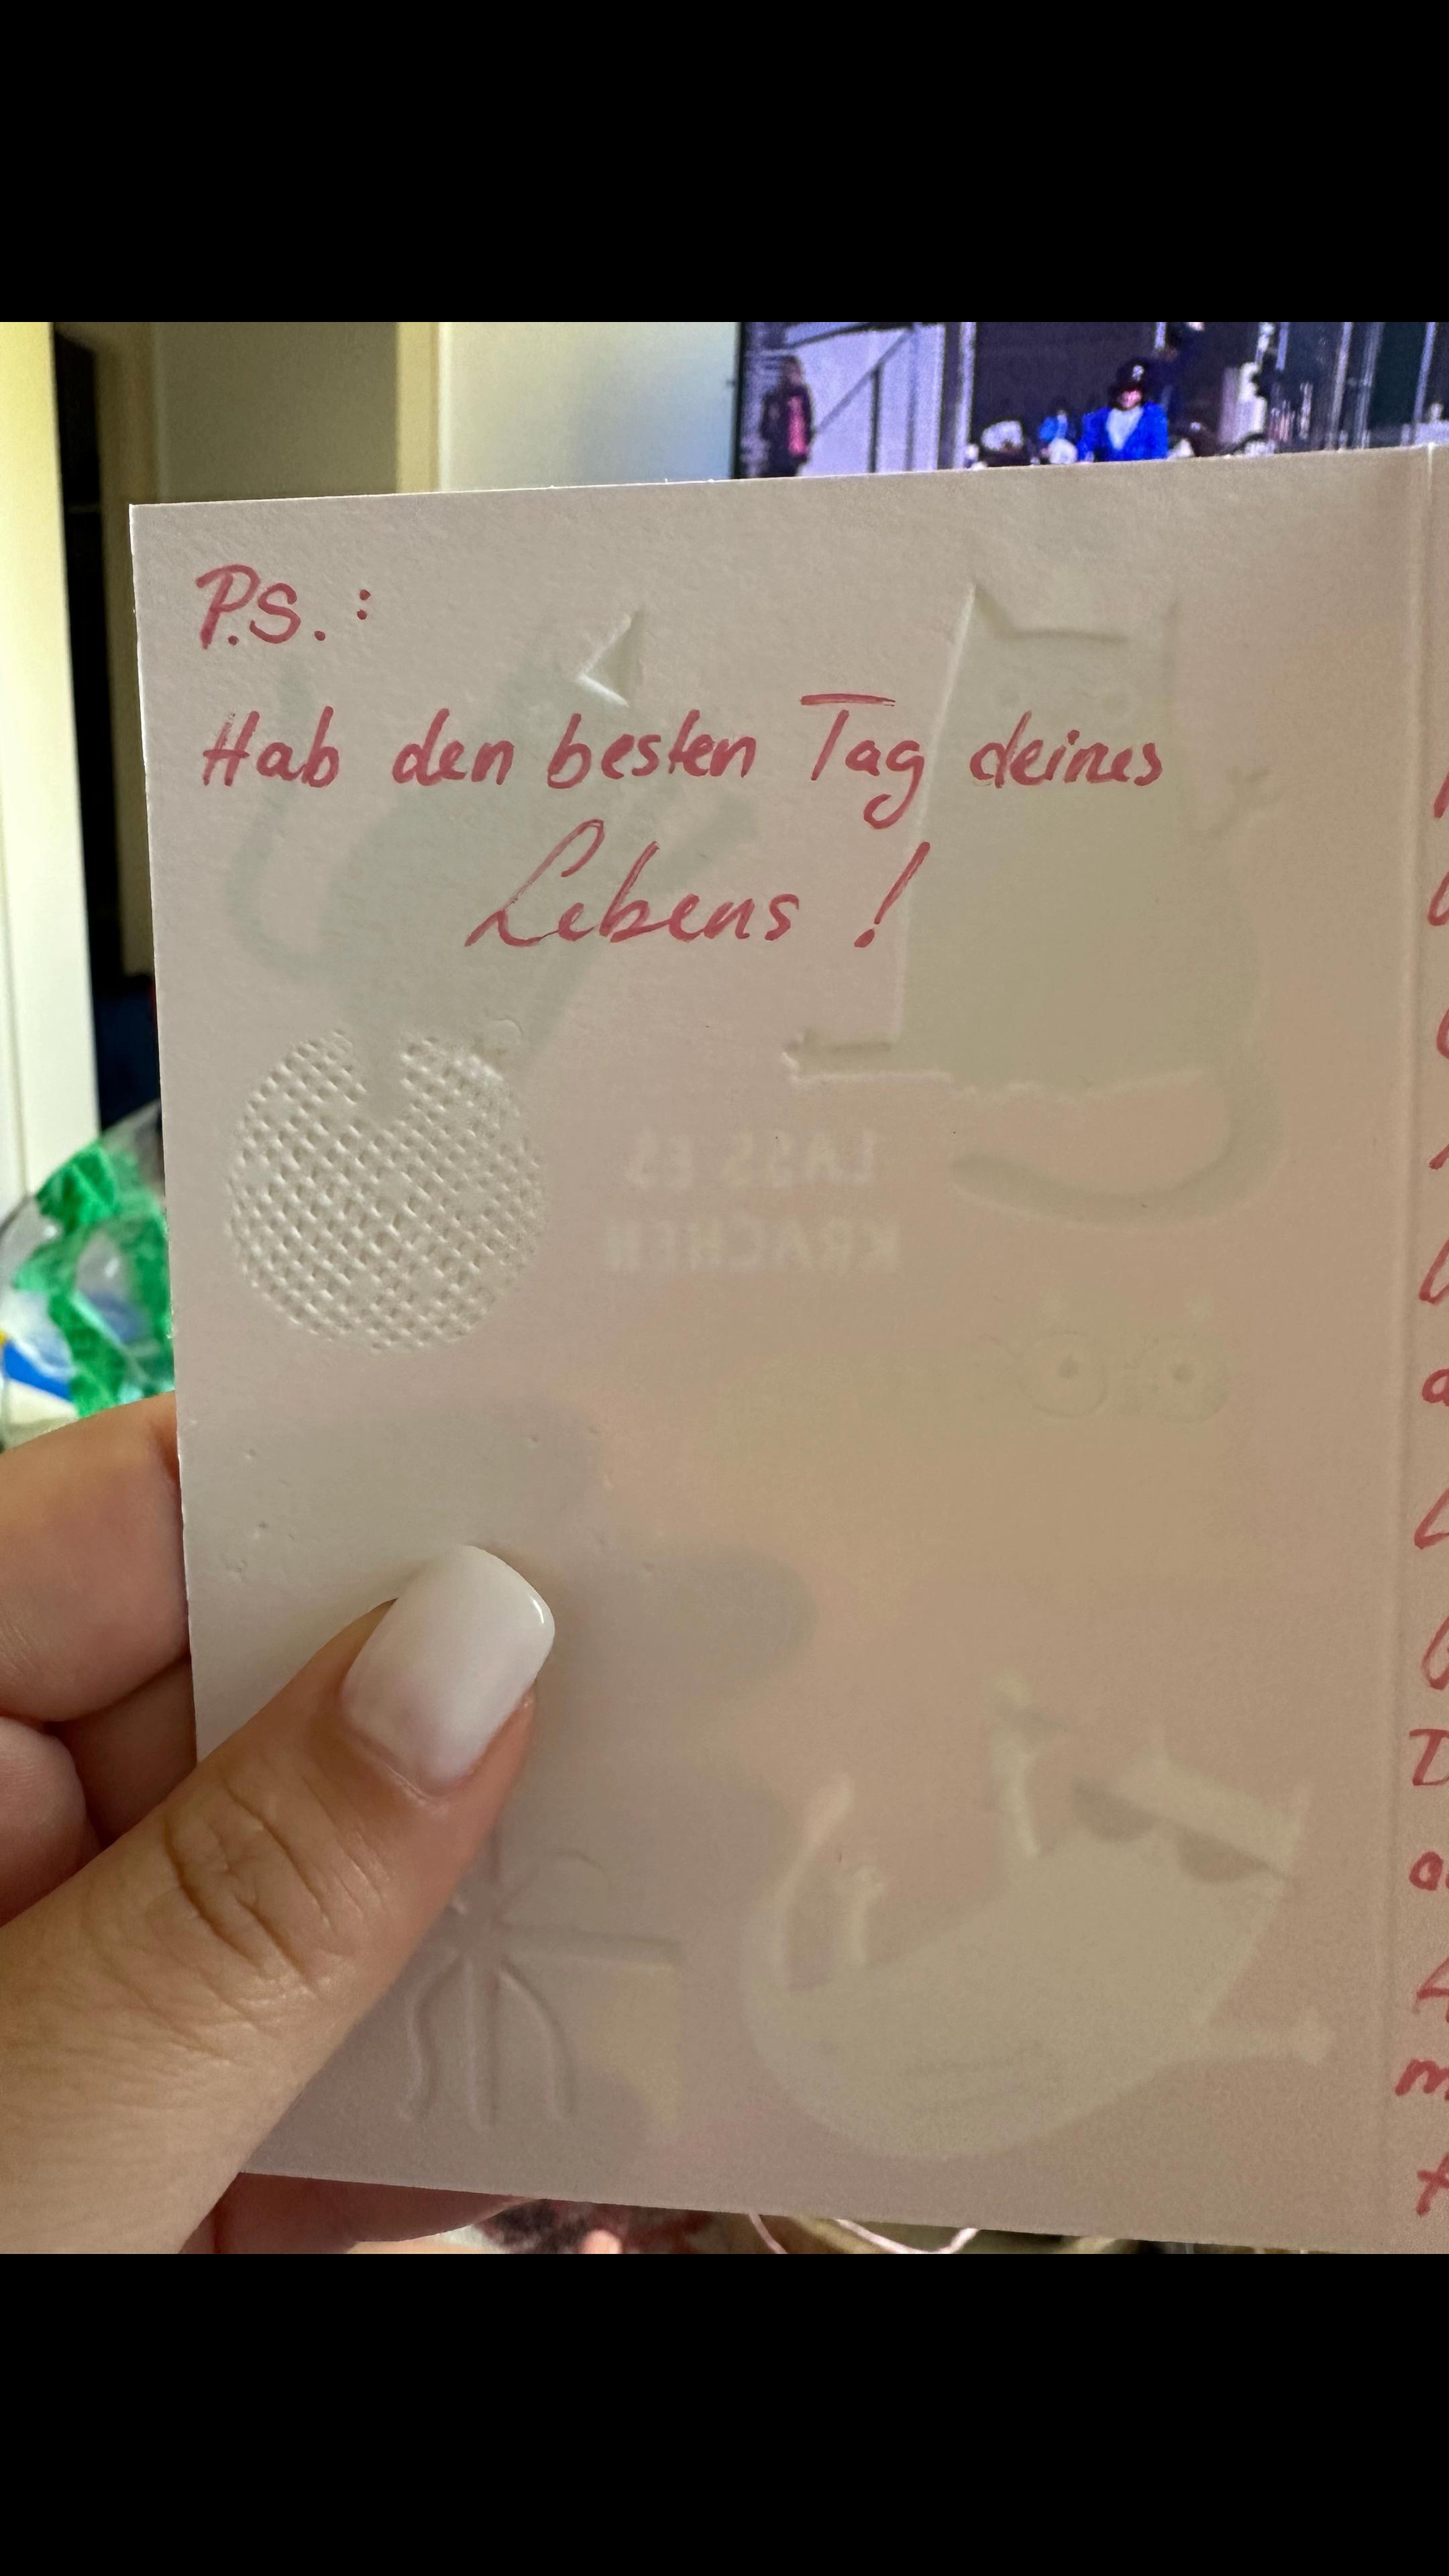 P.S.:
Hab den besten Tag deines
Lebens!
LASS ES
KRACHEN